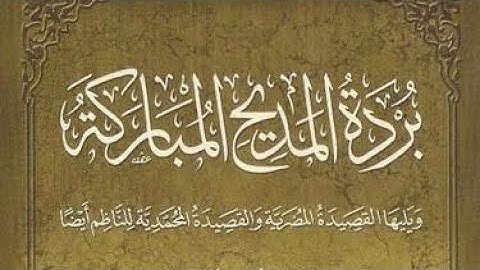 بُرْدَةُ المَدِيحِ المُبَارَكَةُ
وَيَلِيهَا القَصِيدَةُ المُضَرِيَّة وَالقَصِيدَةُ المُحَمَّدِيَّة لِلنَّاظِمِ أَيْضًا